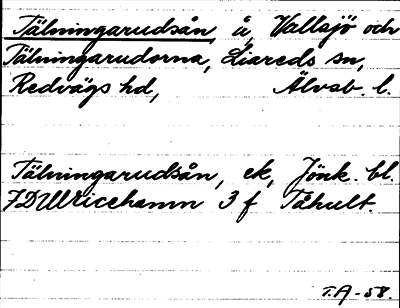 Tälningarudsån, å, Vallsjö och
Tälningarudorna, Liareds sn,
Redvägs hd, Älvsb. l.
Tälningarudsån, ek, Jönk. bl.
7D Ulricehamn 3 f Tåhult.
T.A-58.